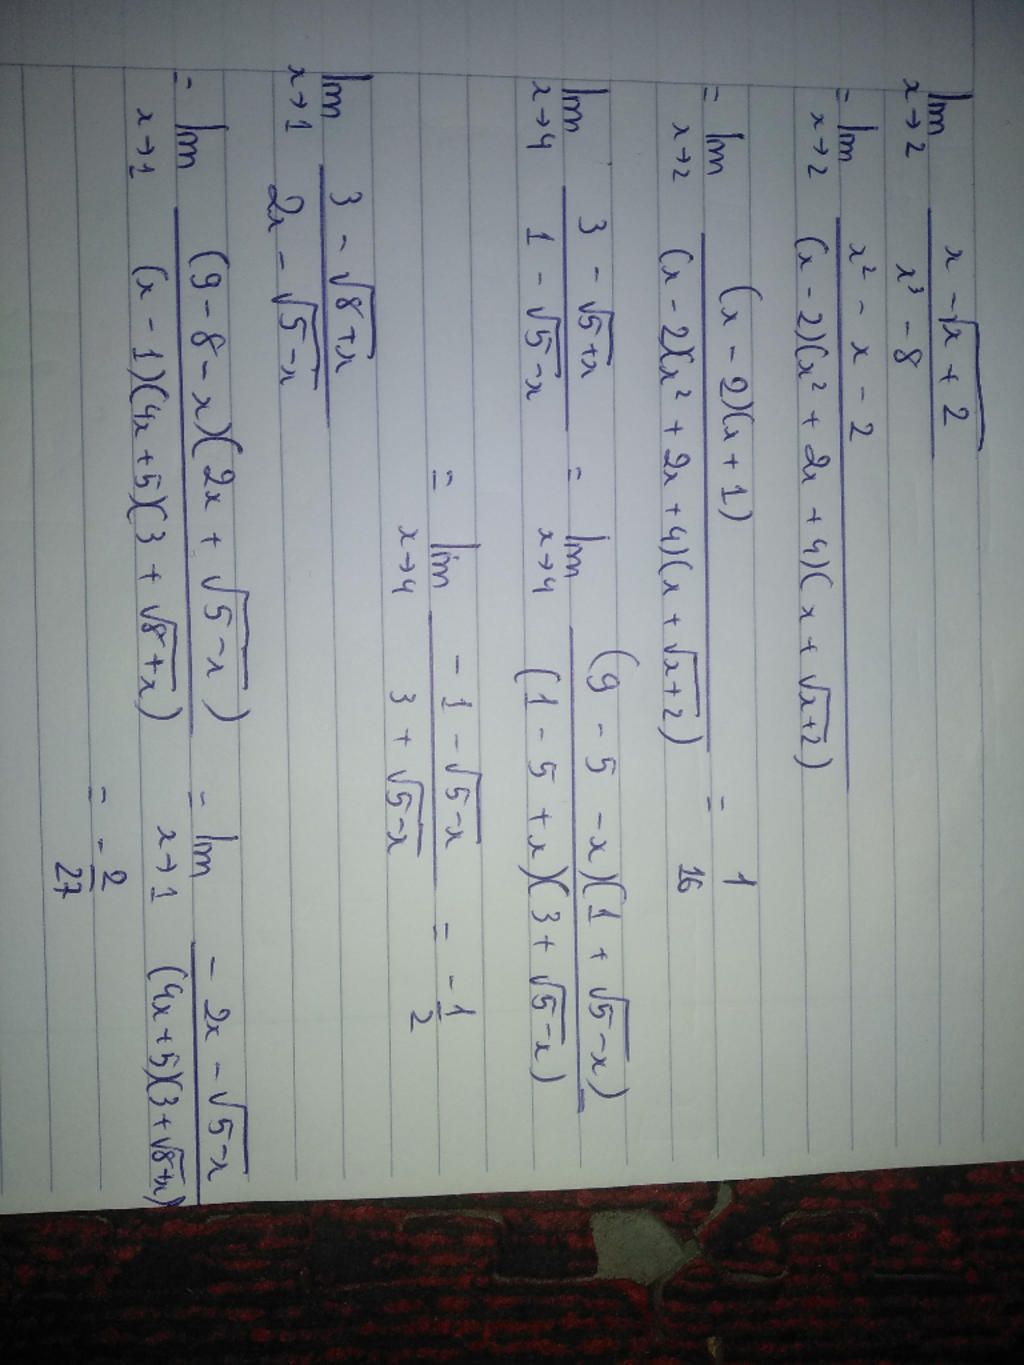 lim x→2 (x - √(x + 2)) / (x³ - 8)
= lim x→2 (x² - x - 2) / ((x - 2)(x² + 2x + 4)(x + √(x+2)))
= lim x→2 ((x - 2)(x + 1)) / ((x - 2)(x² + 2x + 4)(x + √(x+2))) = 1/16
lim x→4 (3 - √(5+x)) / (1 - √(5-x)) = lim x→4 ((9 - 5 - x)(1 + √(5-x))) / ((1 - 5 + x)(3 + √(5-x)))
= lim x→4 (-1 - √(5-x)) / (3 + √(5-x)) = -1/2
lim x→1 (3 - √(8+x)) / (2x - √(5-x))
= lim x→1 ((9 - 8 - x)(2x + √(5-x))) / ((x - 1)(4x + 5)(3 + √(8+x))) = lim x→1 (-2x - √(5-x)) / ((4x + 5)(3 + √(8+x)))
= -2/27